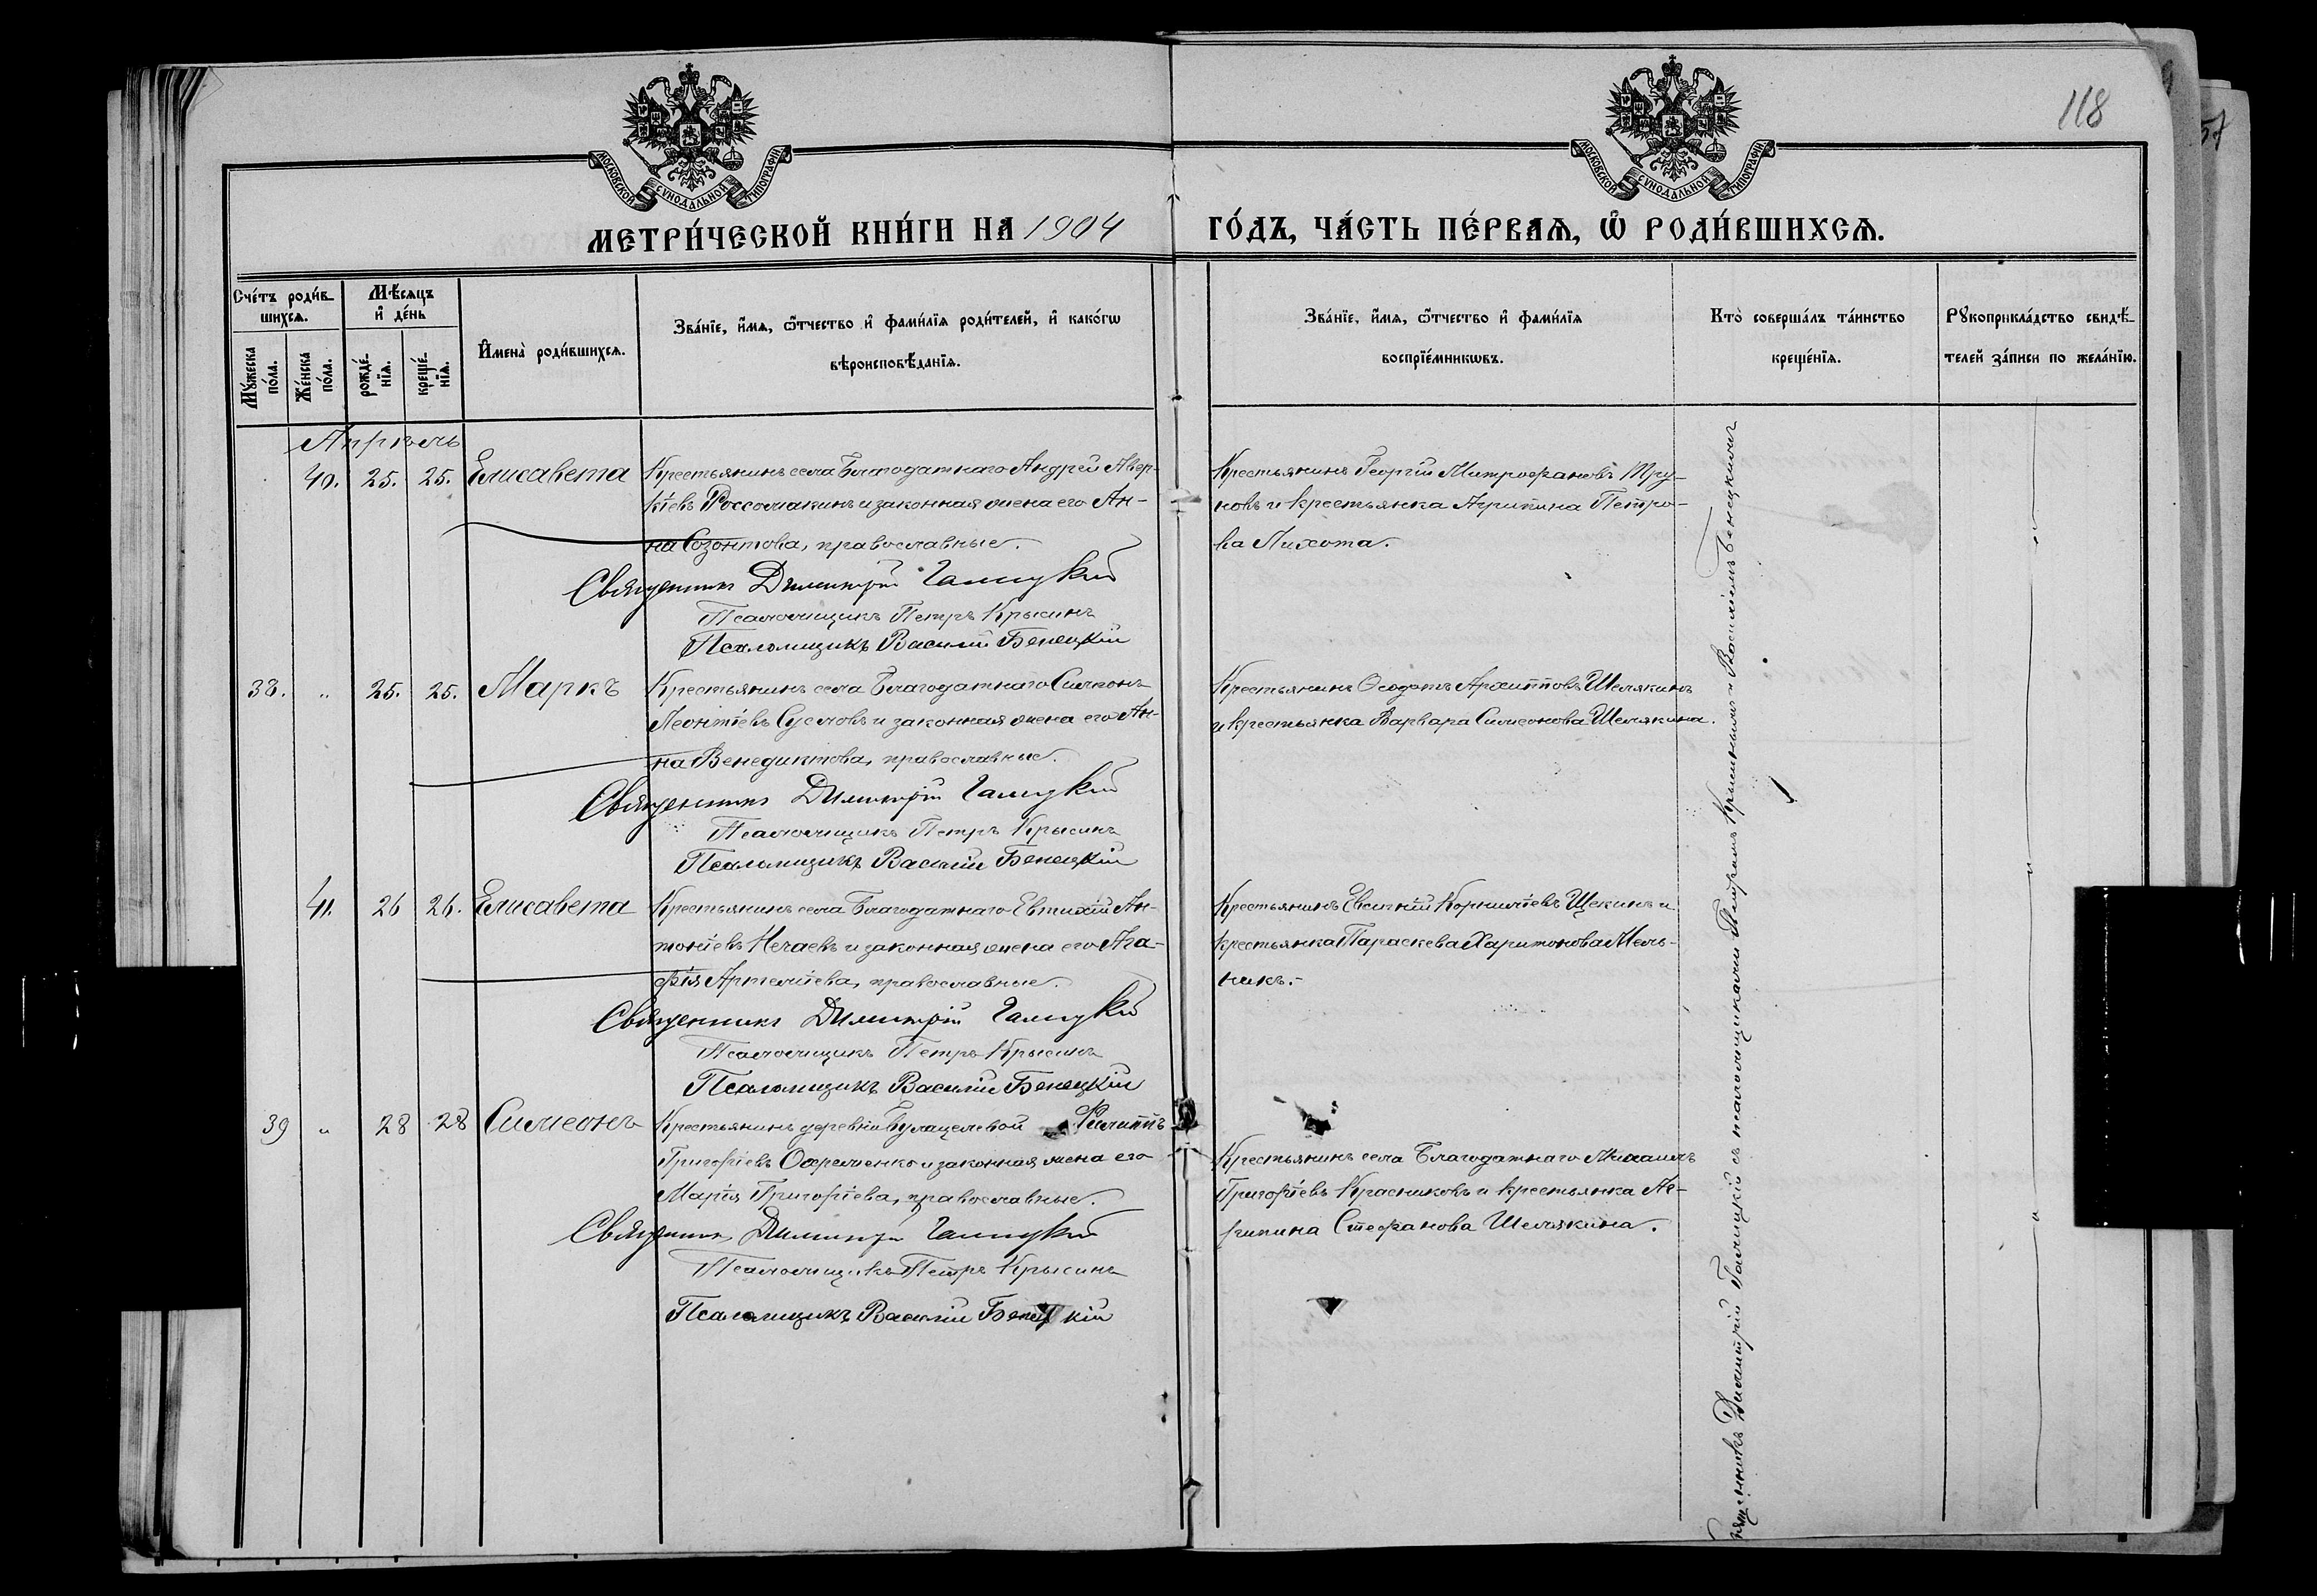 118
57
МОСКОВСКОЙ СѴНОДАЛЬНОЙ ТИПОГРАФІИ
МОСКОВСКОЙ СѴНОДАЛЬНОЙ ТИПОГРАФІИ
МЕТРИ́ЧЕСКОЙ КНИ́ГИ НА 1904 ГО́ДЪ, ЧА́СТЬ ПЕ́РВАѦ, Ѡ҆ РОДИ́ВШИХСѦ.
Сче́тъ роди́в-
шихсѧ.
Мѣ́сѧцъ
и҆ де́нь
Мꙋ́жеска
по́ла.
Же́нска
по́ла.
рожде́-
нїѧ.
креще́-
нїѧ.
И҆мена̀ роди́вшихсѧ.
Зва́нїе, и҆́мѧ, ѻ҆́тчество и҆ фами́лїѧ роди́телей, и҆ како́гѡ
вѣроисповѣ́данїѧ.
Зва́нїе, и҆́мѧ, ѻ҆́тчество и҆ фами́лїѧ
воспрїе́мникѡвъ.
Кто̀ соверша́лъ та́инство
креще́нїѧ.
Рꙋкоприкла́дство свидѣ́-
телей за́писи по жела́нїю.
Апрѣль
40. 25. 25. Елисавета
Крестьянинъ села Благодатнаго Андрей Авер-
кіевъ Россомакинъ и законная жена его Ан-
на Созонтова, православные.
Священникъ Димитрій Галицкій
Псаломщикъ Петръ Крысинъ
Псаломщикъ Василій Бенецкій
Крестьянинъ Георгій Митрофановъ Тру-
новъ и крестьянка Агрипина Петро-
ва Лихота.
38. " 25. 25. Маркъ
Крестьянинъ села Благодатнаго Симеонъ
Леонтіевъ Сусловъ и законная жена его Ан-
на Венедиктова, православные.
Священникъ Димитрій Галицкій
Псаломщикъ Петръ Крысинъ
Псаломщикъ Василій Бенецкій
Крестьянинъ Ѳеодотъ Архипповъ Шелякинъ
и крестьянка Варвара Симеонова Шелякина.
41. 26 26. Елисавета
Крестьянинъ села Благодатнаго Евтихій Ан-
тоніевъ Нечаевъ и законная жена его Ага-
фія Артеміева, православные.
Священникъ Димитрій Галицкій
Псаломщикъ Петръ Крысинъ
Псаломщикъ Василій Бенецкій
Крестьянинъ Евсигній Корниліевъ Щекинъ и
крестьянка Параскева Харитонова Мель-
никъ.-
39 " 28 28 Симеонъ
Крестьянинъ деревни Булацеловой Филиппъ
Григоріевъ Охременко и законная жена его
Марія Григоріева, православные.
Священникъ Димитрій Галицкій
Псаломщикъ Петръ Крысинъ
Псаломщикъ Василій Бенецкій
Крестьянинъ села Благодатнаго Михаилъ
Григоріевъ Красниковъ и крестьянка Аг-
рипина Стефанова Шелякина.
Священникъ Димитрій Галицкій съ псаломщиками Петромъ Крысинымъ и Василіемъ Бенецкимъ